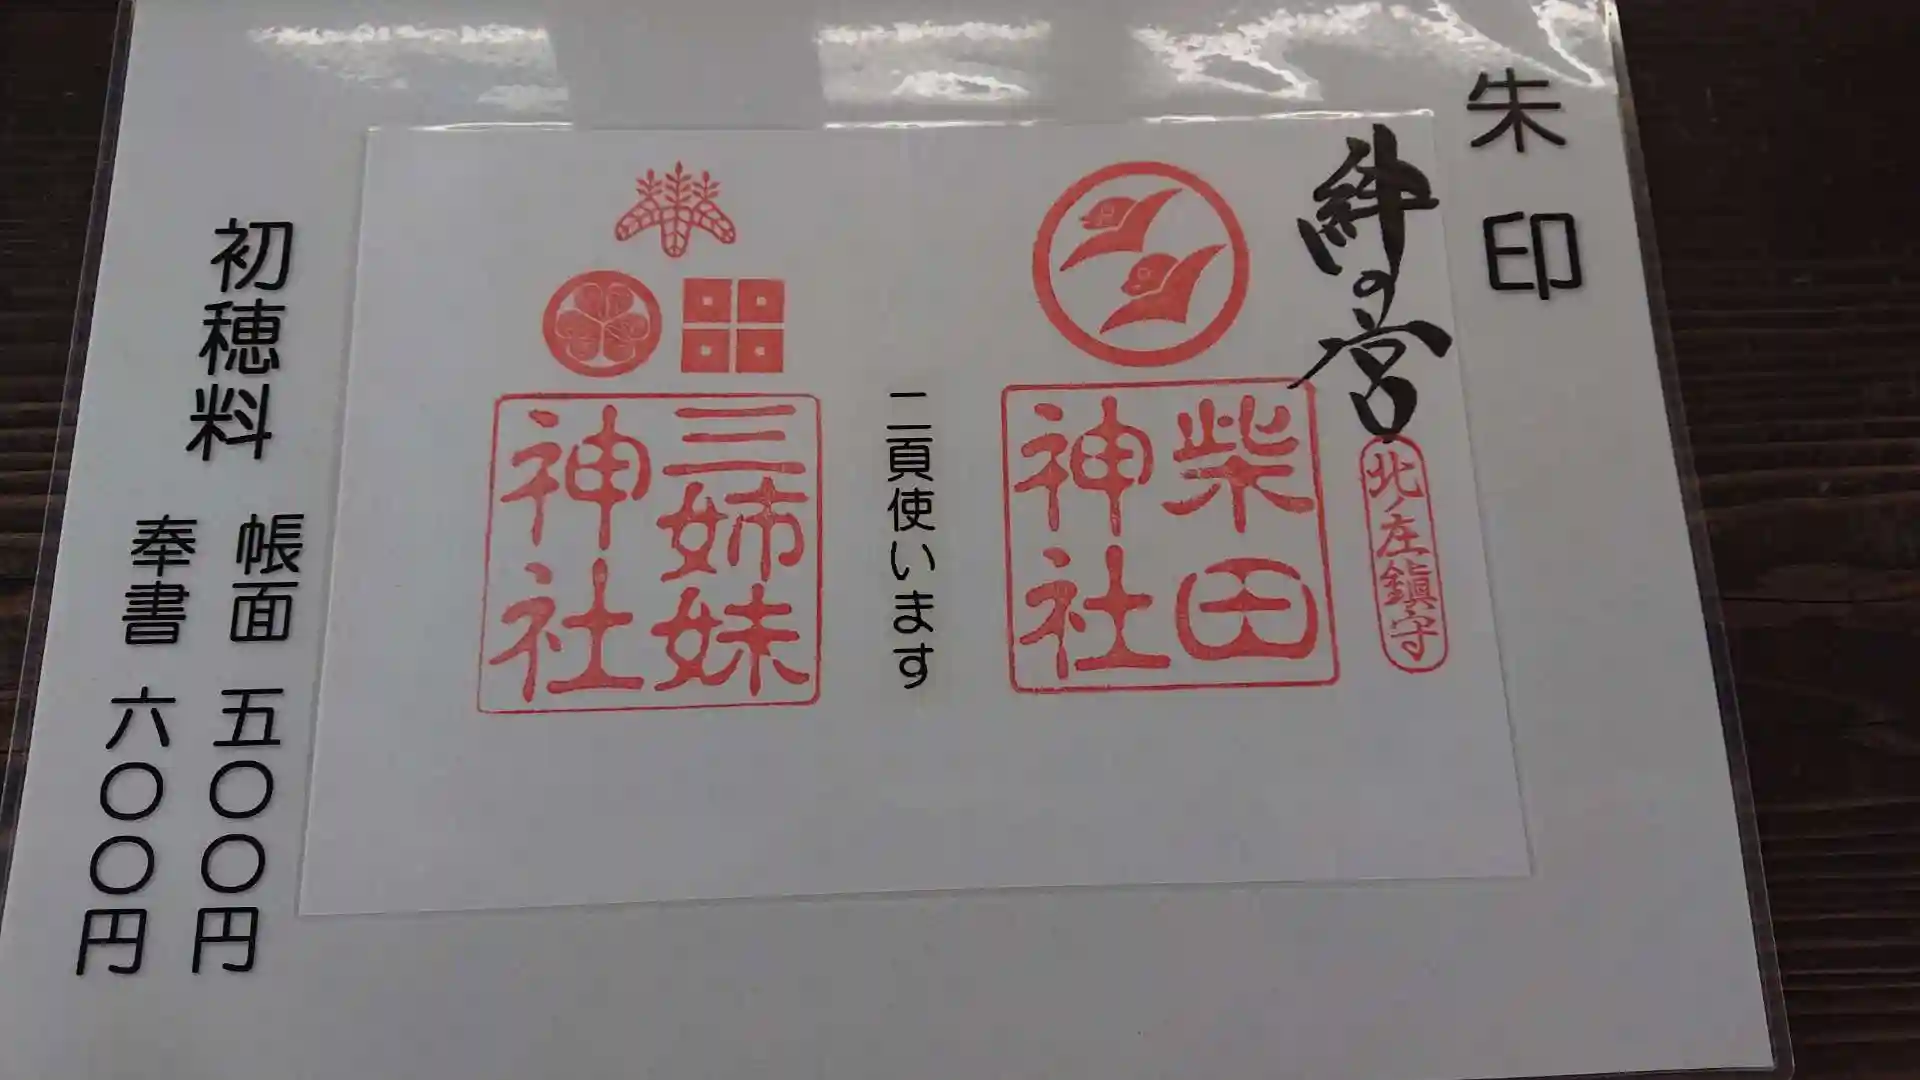 朱印
絆の宮
北ノ庄鎮守
柴田
神社
二頁使います
三姉妹
神社
初穂料
帳面 五〇〇円
奉書 六〇〇円